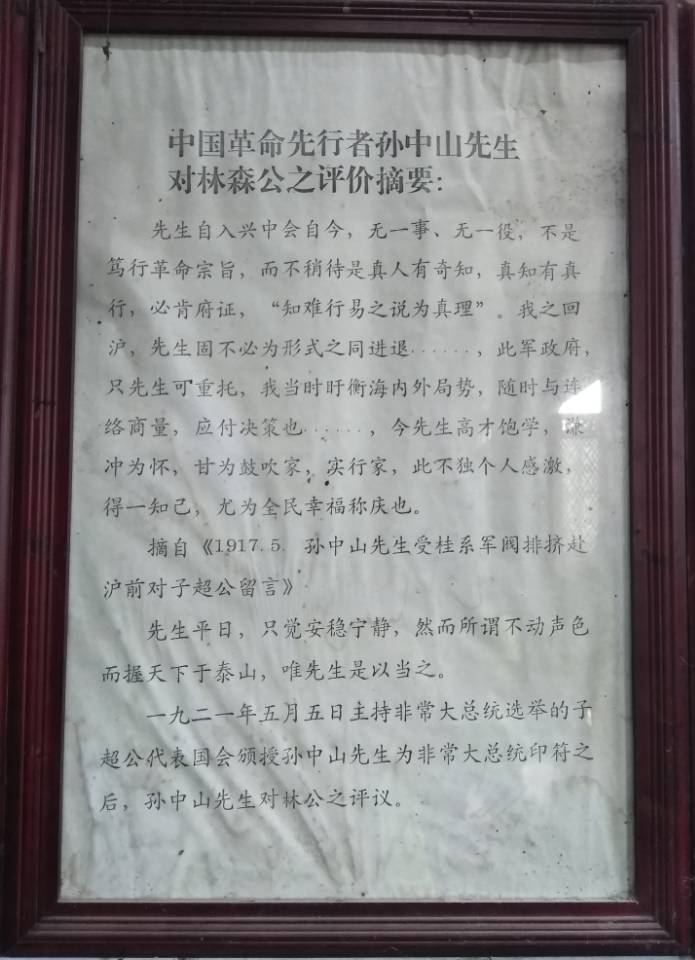 中国革命先行者孙中山先生
对林森公之评价摘要：
先生自入兴中会自今，无一事、无一役，不是
笃行革命宗旨，而不稍待是真人有奇知，真知有真
行，必肯府证，“知难行易之说为真理”。我之回
沪，先生固不必为形式之同进退……，此军政府，
只先生可重托，我当时盱衡海内外局势，随时与连
络商量，应付决策也……，今先生高才饱学，谦
冲为怀，甘为鼓吹家，实行家，此不独个人感激，
得一知己，尤为全民幸福称庆也。
摘自《1917.5.孙中山先生受桂系军阀排挤赴
沪前对子超公留言》
先生平日，只觉安稳宁静，然而所谓不动声色
而握天下于泰山，唯先生是以当之。
一九二一年五月五日主持非常大总统选举的子
超公代表国会颁授孙中山先生为非常大总统印符之
后，孙中山先生对林公之评议。